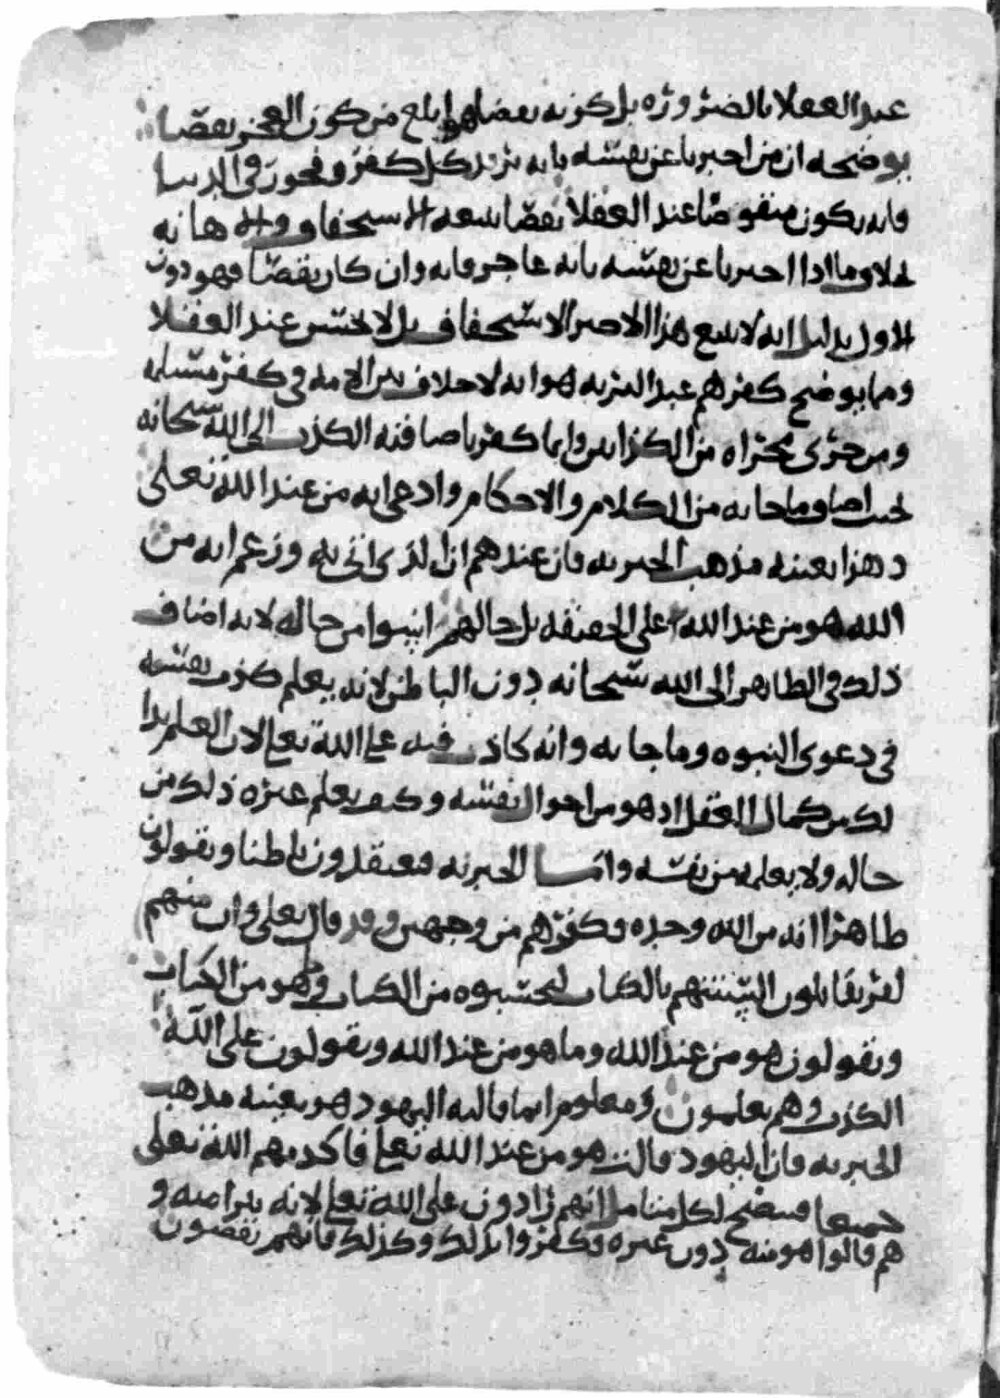 عند العقلا بالضرورة بل كونه نقضا هو ابلغ من كون العجز نقصا
يوضحه ان من اخبرنا عن نفسه بانه يريد كل كفر وفجور في الدنيا
فانه يكون منقوصا عند العقلا نقصا يتبعه الاستخفاف والاهانة
له وما اذا اخبرنا عن نفسه بانه عاجز فانه وان كان نقصا فهو دون
الاول بدليل انه لا يتبع هذا الامر الاستخفاف بل لا يحسن عند العقلا
ومما يوضح كفرهم عند التنزيه هو انه لا خلاف بين الامة في كفر مسيلمه
ومن جرى مجراه من الكذابين وانما كفر باضافته الكذب الى الله سبحانه
حيث اضاف ما جا به من الكلام والاحكام وادعى انه من عند الله تعلى
وهذا بعينه مذهب الجبريه فان عندهم ان الذي اتى به وزعم انه من
الله هو من عند الله على الحقيقة بل حالهم اسوا من حاله لانه اضاف
ذلك في الظاهر الى الله سبحانه دون الباطن لانه يعلم كذب نفسه
في دعوى النبوه وما جا به وانه كاذب فيه على الله تعلى لان العلم بذا
لك من كمال العقل اذ هو من احوال نفسه وكيف يعلم غيره ذلك من
حاله ولا يعلمه من نفسه واما الجبريه فيعتقدون باطنا ويقولون
ظاهرا انه من الله وحده فكفرهم من وجهين وقد قال تعلى وان منهم
لفريقا يلون السنتهم بالكتاب لتحسبوه من الكتاب وما هو من الكتاب
ويقولون هو من عند الله وما هو من عند الله ويقولون على الله
الكذب وهم يعلمون ومعلوم ان ما قالته اليهود هو بعينه مذهب
الجبريه فان اليهود قالت هو من عند الله تعلى فاكذبهم الله تعلى
جميعا فيتضح لكل متامل انهم زادون على الله تعلى لانه يتبرا منه و
هم قالوا هو منه دون غيره فكفروا بذلك وكذلك فانهم نقضون